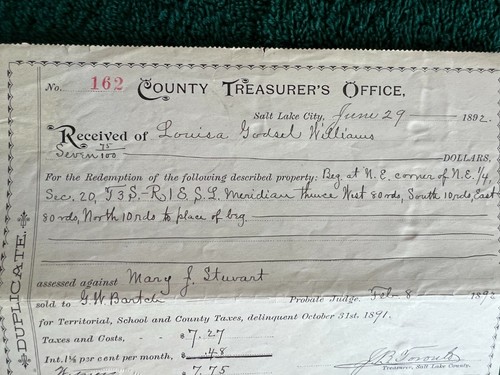 No. 162 COUNTY TREASURER'S OFFICE,
Salt Lake City, June 29 1892
Received of Louisa Godsel Williams
Sevin 75/100 DOLLARS,
For the Redemption of the following described property: Beg at N.E. corner of N.E. 1/4
Sec. 20, T3S- R1E S.L. Meridian thence West 80 rds, South 10 rds, East
80 rds, North 10 rds to place of beg
assessed against Mary J. Stewart
sold to G W Bartch Probate Judge. Feb 8 1892
for Territorial, School and County Taxes, delinquent October 31st, 1891.
Taxes and Costs, - $ 7.27
Int. 1½ per cent per month, $ .48
$ 7.75
Treasurer, Salt Lake County.
DUPLICATE.